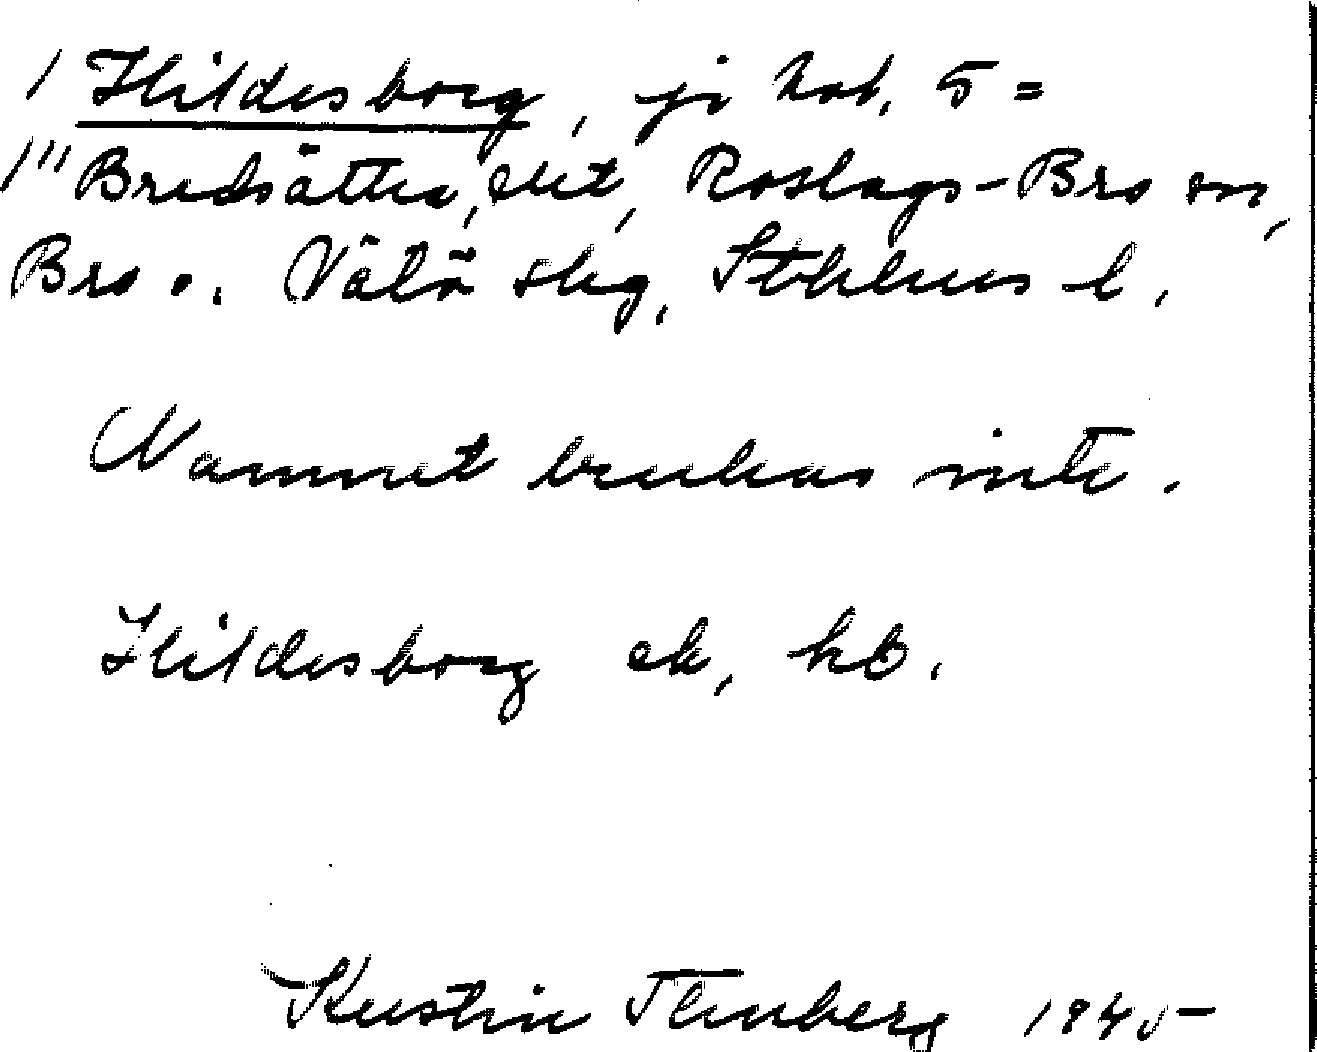 / Hildesborg, på kat. 5 =
/" Bredsättra, elit, Roslags-Bro sn,
Bro o. Vätö skg, Sthlms l.
Namnet brukas inte.
Hildesborg ek, kb.
Kerstin Thenberg 1945